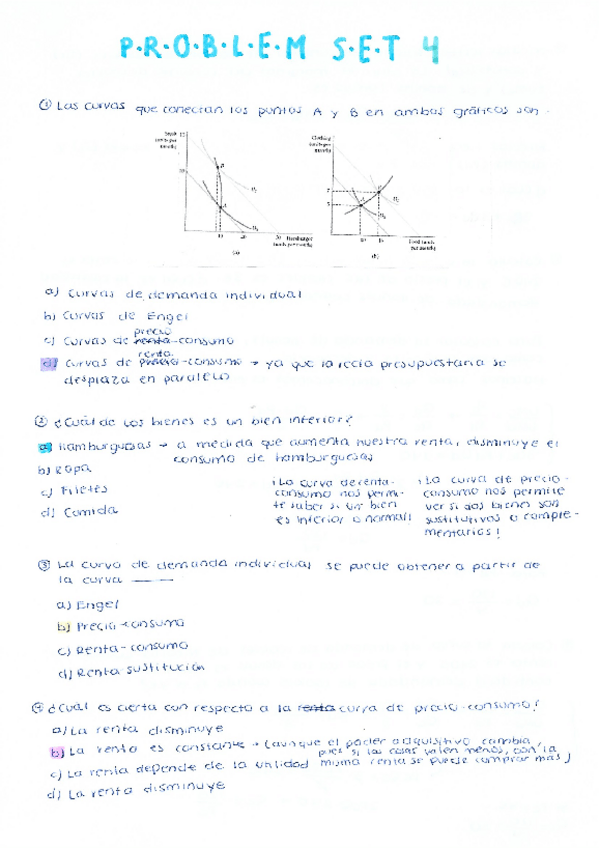 P·R·O·B·L·E·M S·E·T 4
① Las curvas que conectan los puntos A y B en ambos gráficos son.
Clothing
(a)
(b)
a) Curvas de demanda individual
b) Curvas de Engel
precio
c) Curvas de renta-consumo
renta
d) Curvas de precio-consumo → ya que la recta presupuestaria se
desplaza en paralelo
② ¿Cuál de los bienes es un bien inferior?
a) Hamburguesas → a medida que aumenta nuestra renta, disminuye el
consumo de hamburguesas
b) Ropa
c) Filetes
d) Comida
¡La curva de renta-
consumo nos permi-
te saber si un bien
es inferior o normal!
¡La curva de precio-
consumo nos permite
ver si dos bienes son
sustitutivos o comple-
mentarios!
③ La curva de demanda individual se puede obtener a partir de
la curva ———
a) Engel
b) Precio-consumo
c) Renta-consumo
d) Renta sustitución
④ ¿Cuál es cierta con respecto a la renta curva de precio-consumo?
a) La renta disminuye
b) La renta es constante → (aunque el poder adquisitivo cambia
pues si las cosas valen menos, con la
c) La renta depende de la utilidad misma renta se puede comprar más)
d) La renta disminuye